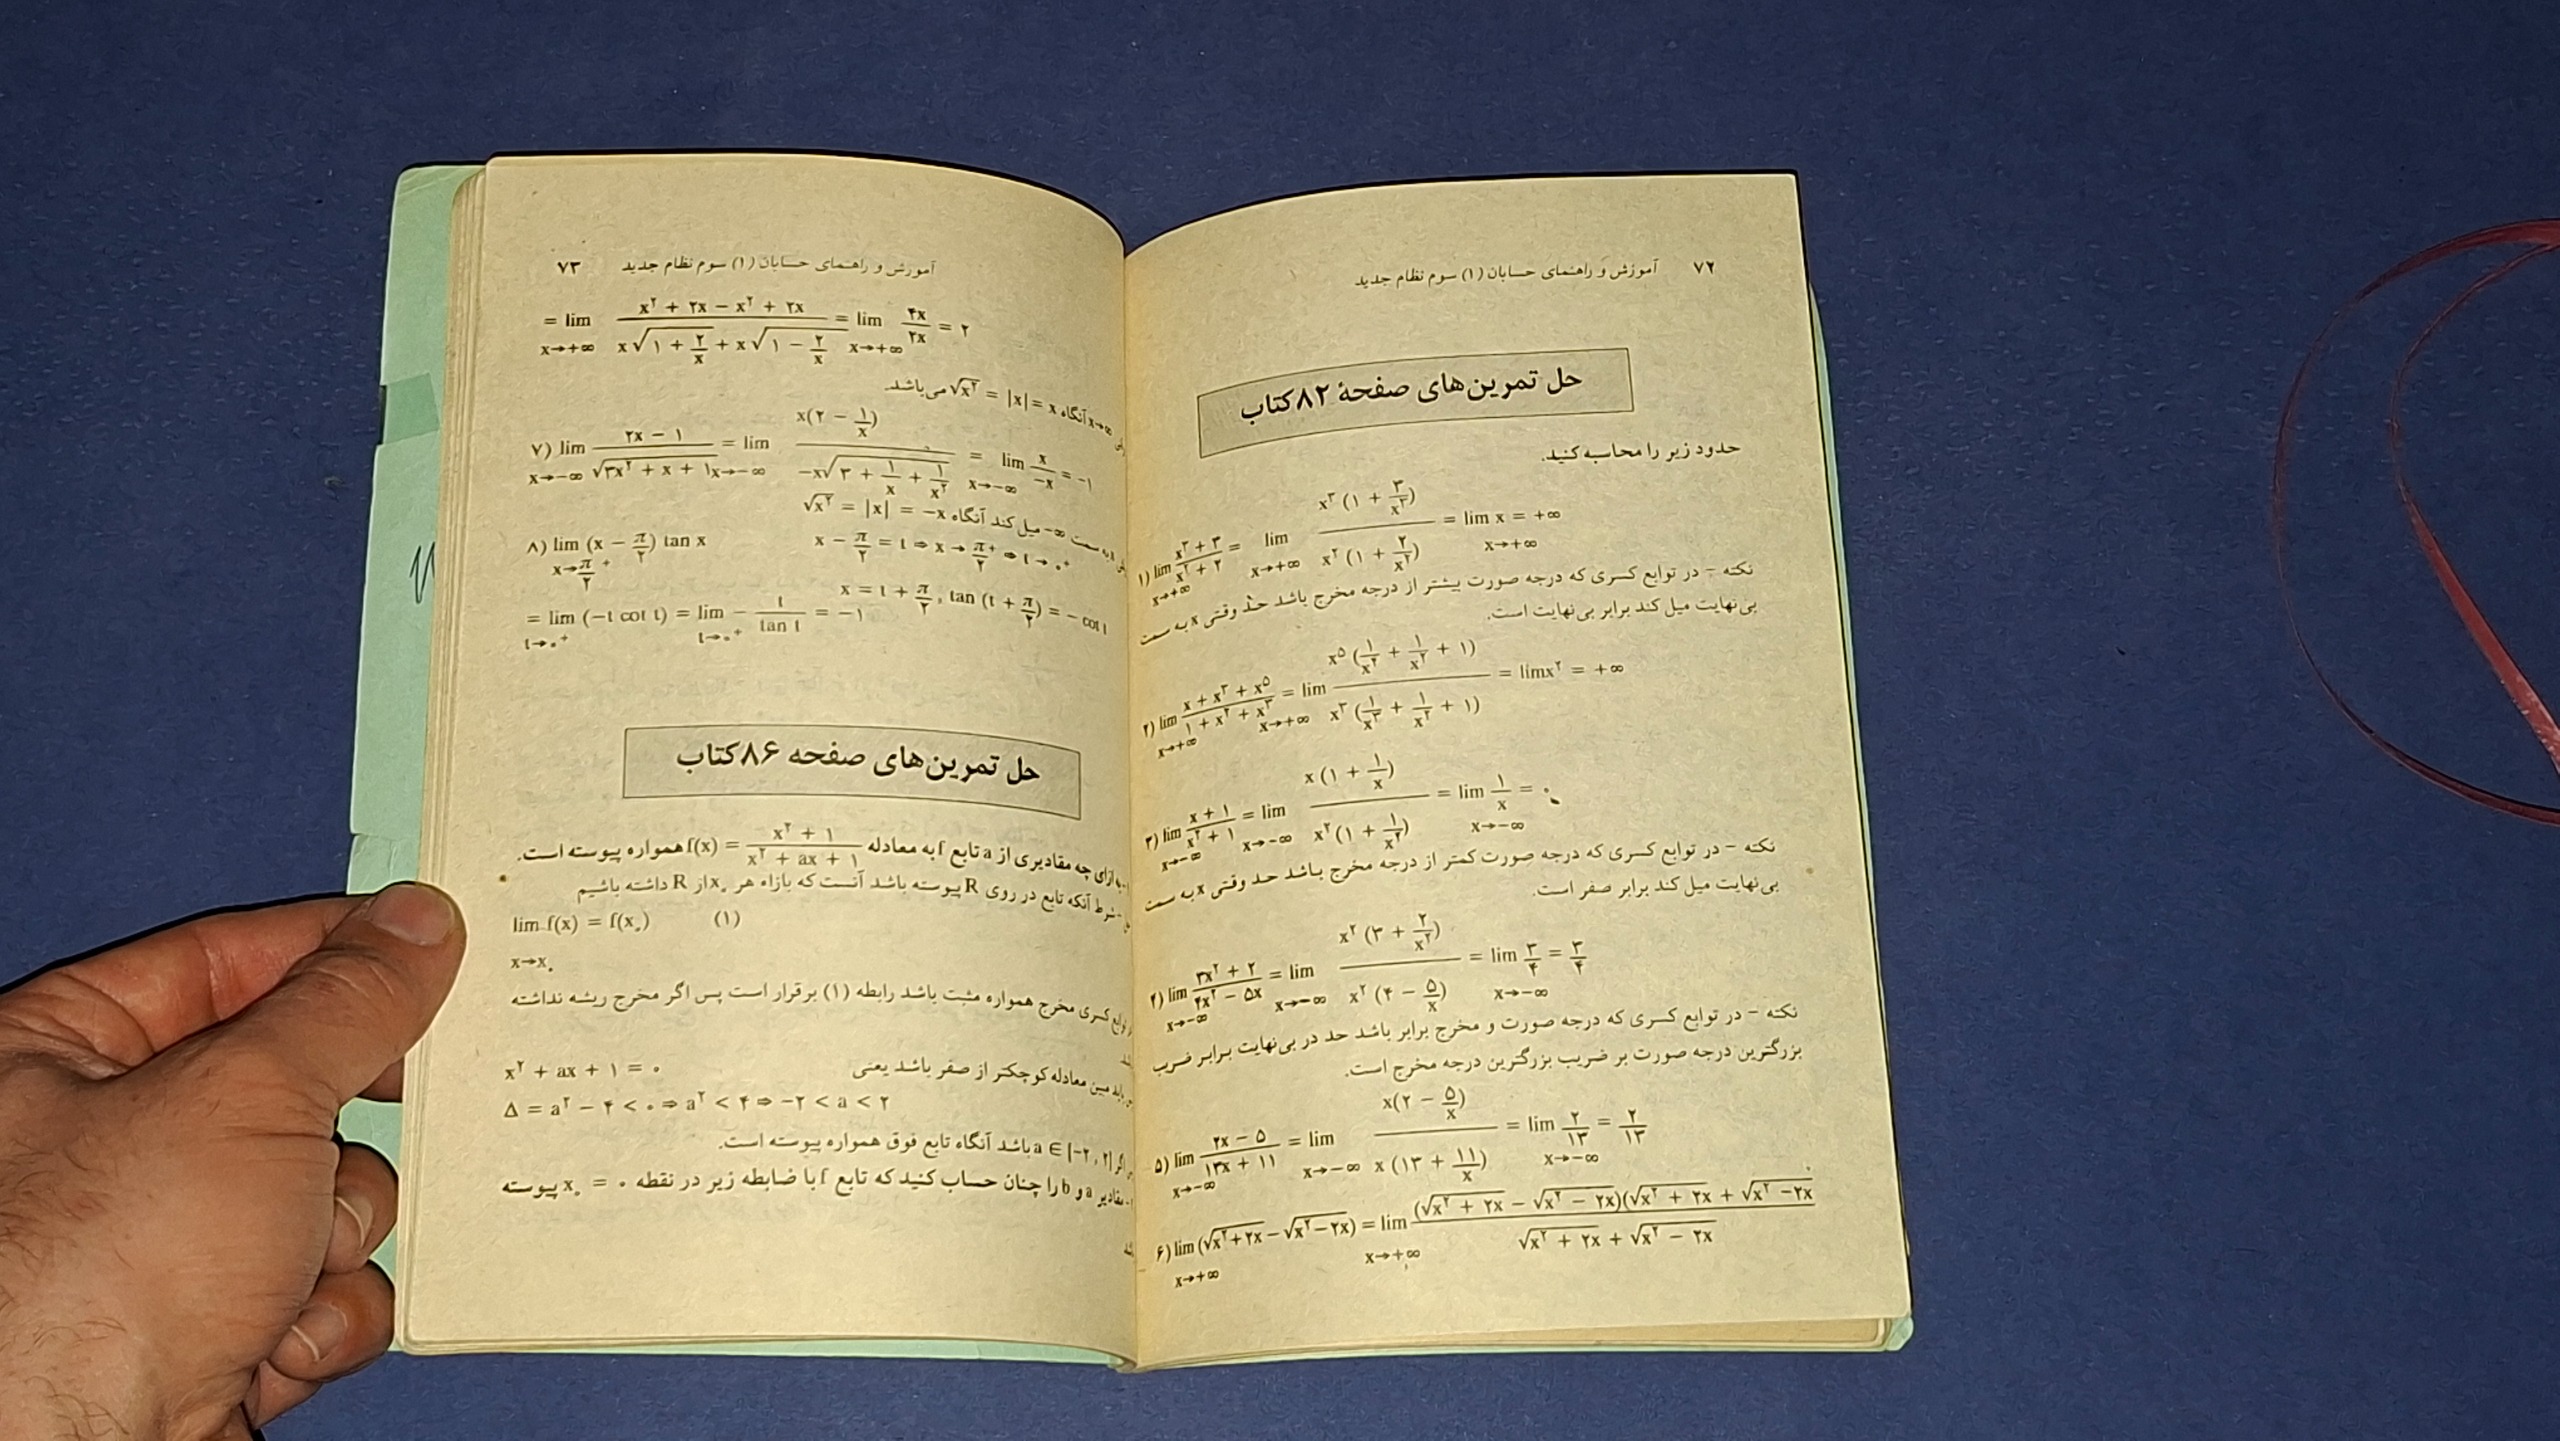 ۷۲ آموزش و راهنمای حسابان (۱) سوم نظام جدید
حل تمرین‌های صفحهٔ ۸۲ کتاب
حدود زیر را محاسبه کنید.
۱) lim x→+∞ (x³ + ۳)/(x² + ۲) = lim x→+∞ x³(۱ + ۳/x³) / x²(۱ + ۲/x²) = lim x = +∞ x→+∞
نکته – در توابع کسری که درجه صورت بیشتر از درجه مخرج باشد حد وقتی x به سمت
بی‌نهایت میل کند برابر بی‌نهایت است.
۲) lim x→+∞ (x + x³ + x⁵)/(۱ + x² + x³) = lim x→+∞ x⁵(۱/x⁴ + ۱/x² + ۱) / x³(۱/x³ + ۱/x² + ۱) = lim x² = +∞
۳) lim x→-∞ (x + ۱)/(x² + ۱) = lim x→-∞ x(۱ + ۱/x) / x²(۱ + ۱/x²) = lim x→-∞ ۱/x = ۰
نکته – در توابع کسری که درجه صورت کمتر از درجه مخرج باشد حد وقتی x به سمت
بی‌نهایت میل کند برابر صفر است.
۴) lim x→-∞ (۳x² + ۲)/(۴x² – ۵x) = lim x→-∞ x²(۳ + ۲/x²) / x²(۴ – ۵/x) = lim x→-∞ ۳/۴ = ۳/۴
نکته – در توابع کسری که درجه صورت و مخرج برابر باشد حد در بی‌نهایت برابر ضریب
بزرگترین درجه صورت بر ضریب بزرگترین درجه مخرج است.
۵) lim x→-∞ (۲x – ۵)/(۱۳x + ۱۱) = lim x→-∞ x(۲ – ۵/x) / x(۱۳ + ۱۱/x) = lim x→-∞ ۲/۱۳ = ۲/۱۳
۶) lim x→+∞ (√(x²+۲x) – √(x²–۲x)) = lim x→+∞ (√(x² + ۲x) – √(x² – ۲x))(√(x² + ۲x) + √(x² –۲x) / √(x² + ۲x) + √(x² – ۲x)
آموزش و راهنمای حسابان (۱) سوم نظام جدید ۷۳
= lim x→+∞ (x² + ۲x – x² + ۲x) / (x√(۱ + ۲/x) + x√(۱ – ۲/x)) = lim x→+∞ ۴x/۲x = ۲
x→∞ آنگاه √x² = |x| = x می‌باشد.
۷) lim x→-∞ (۲x – ۱)/√(۳x² + x + ۱) = lim x→-∞ x(۲ – ۱/x) / –x√(۳ + ۱/x + ۱/x²) = lim x→-∞ x/–x = –۱
به سمت ∞– میل کند آنگاه √x² = |x| = –x
۸) lim x→π/۲⁺ (x – π/۲) tan x    x – π/۲ = t ⇒ x→π/۲⁺ ⇒ t→۰⁺
x = t + π/۲ , tan (t + π/۲) = – cot t
= lim t→۰⁺ (–t cot t) = lim t→۰⁺ – t/tan t = –۱
حل تمرین‌های صفحه ۸۶ کتاب
ازای چه مقادیری از a تابع f به معادله f(x) = (x² + ۱)/(x² + ax + ۱) همواره پیوسته است.
شرط آنکه تابع در روی R پیوسته باشد آنست که بازاء هر x₀ از R داشته باشیم
lim f(x) = f(x₀)    (۱)
x→x₀
توابع کسری مخرج همواره مثبت باشد رابطه (۱) برقرار است پس اگر مخرج ریشه نداشته
باید مبین معادله کوچکتر از صفر باشد یعنی    x² + ax + ۱ = ۰
Δ = a² – ۴ < ۰ ⇒ a² < ۴ ⇒ –۲ < a < ۲
اگر a ∈ |–۲ , ۲| باشد آنگاه تابع فوق همواره پیوسته است.
مقادیر a و b را چنان حساب کنید که تابع f با ضابطه زیر در نقطه x₀ = ۰ پیوسته